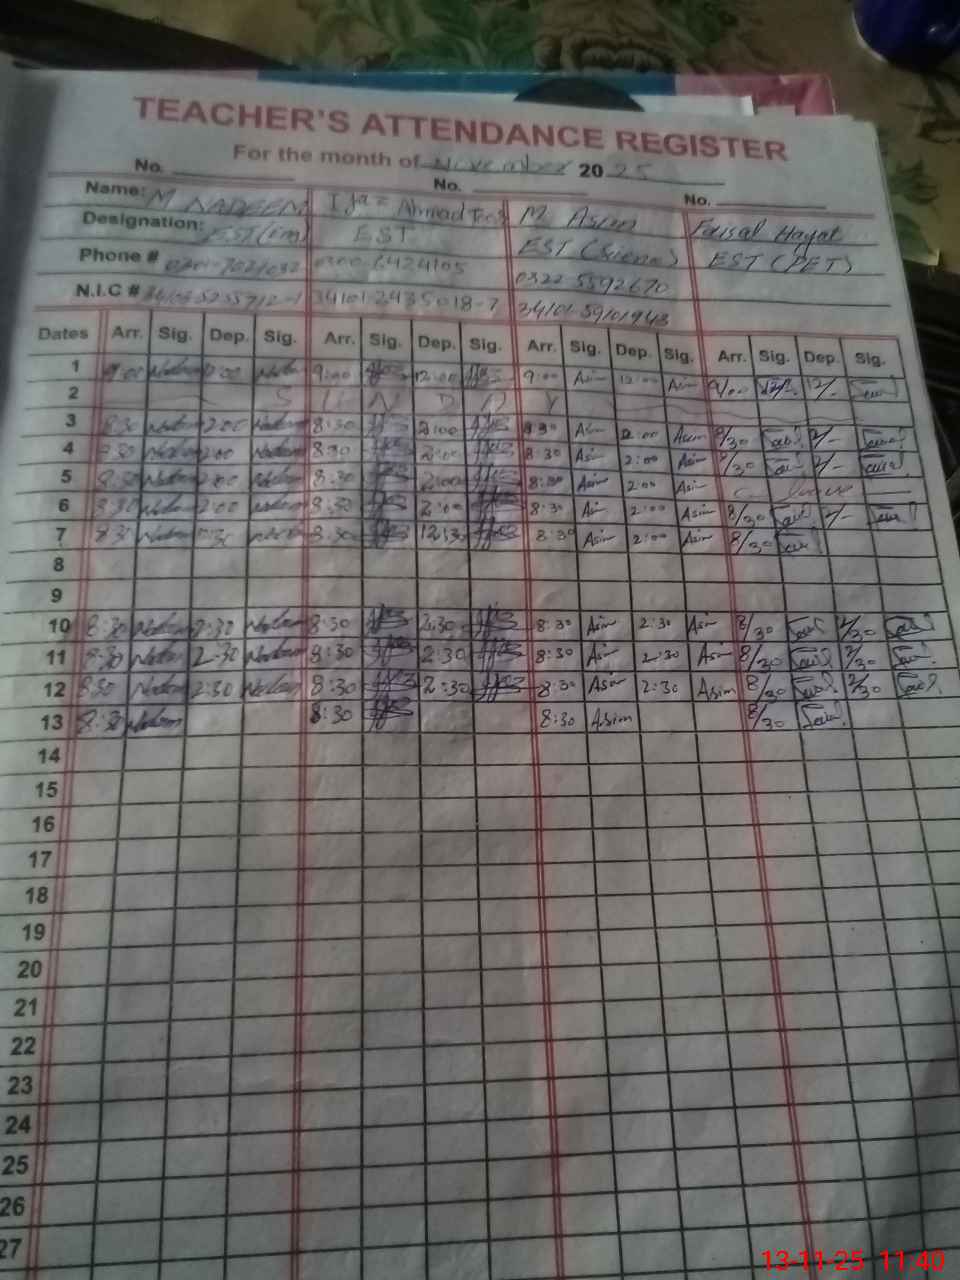 TEACHER'S ATTENDANCE REGISTER
For the month of November 2025
No. No. No.
Name: M NADEEM Ijaz Ahmad M Asim Faisal Hayat
Designation: EST EST EST (Science) EST (PET)
Phone # 0300-6424105 0322-5592670
N.I.C # 34101-2435018-7 34101-59101943
Dates Arr. Sig. Dep. Sig. Arr. Sig. Dep. Sig. Arr. Sig. Dep. Sig. Arr. Sig. Dep. Sig.
1 9:00 Nadeem Nadeem 9:00 12:00 9:00 Asim 12:00 Asim 9/00 12/-
2 S U N D A Y
3 8:30 Nadeem 2:00 Nadeem 8:30 2:00 8:30 Asim 2:00 Asim 8/30 2/-
4 8:30 Nadeem 2:00 Nadeem 8:30 2:00 8:30 Asim 2:00 Asim 8/30 2/-
5 8:30 Nadeem 2:00 Nadeem 8:30 2:00 8:30 Asim 2:00 Asim leave
6 8:30 Nadeem 2:00 Nadeem 8:30 2:00 8:30 Asim 2:00 Asim 8/30 2/-
7 8:30 Nadeem Nadeem 8:30 12:30 8:30 Asim 2:00 Asim 8/30
8
9
10 8:30 Nadeem 2:30 Nadeem 8:30 2:30 8:30 Asim 2:30 Asim 8/30 2/30
11 8:30 Nadeem 2:30 Nadeem 8:30 2:30 8:30 Asim 2:30 Asim 8/30 2/30
12 8:30 Nadeem 2:30 Nadeem 8:30 2:30 8:30 Asim 2:30 Asim 8/30 2/30
13 8:30 Nadeem 8:30 8:30 Asim 8/30
14
15
16
17
18
19
20
21
22
23
24
25
26
27
13-11-25 11:40